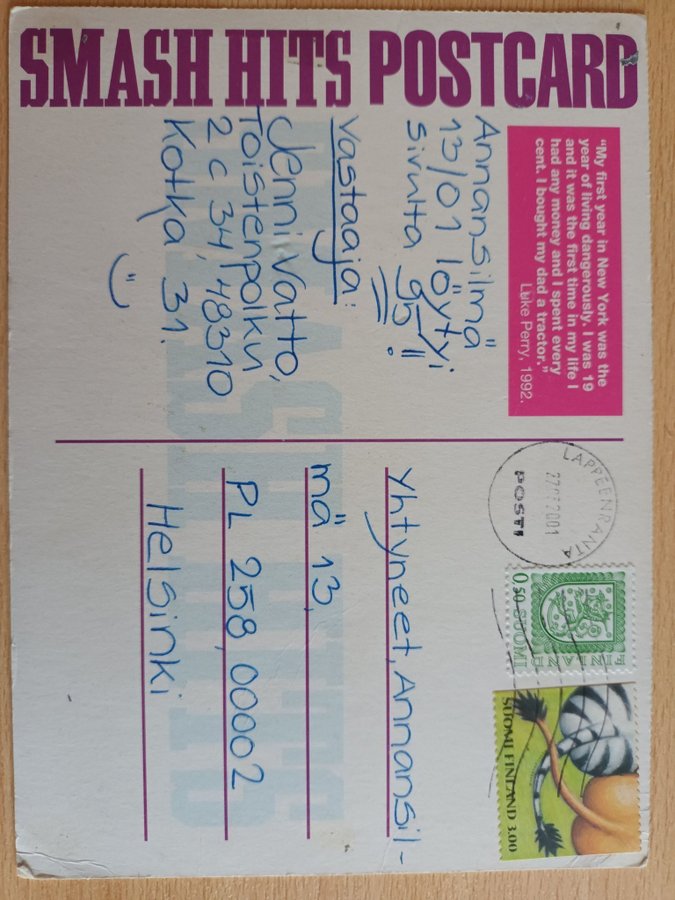 SMASH HITS POSTCARD
"My first year in New York was the
year of living dangerously. I was 19
and it was the first time in my life I
had any money and I spent every
cent. I bought my dad a tractor."
Luke Perry, 1992.
Annansilmä
13/01 löytyi
sivulta 95!
Vastaaja:
Jenni Vatto,
Toistenpolku
2 C 34, 48310
Kotka 31.
LAPPEENRANTA
2001
POSTI
0,50 SUOMI
FINLAND
SUOMI FINLAND 3.00
Yhtyneet, Annansil-
mä 13,
PL 258, 00002
Helsinki